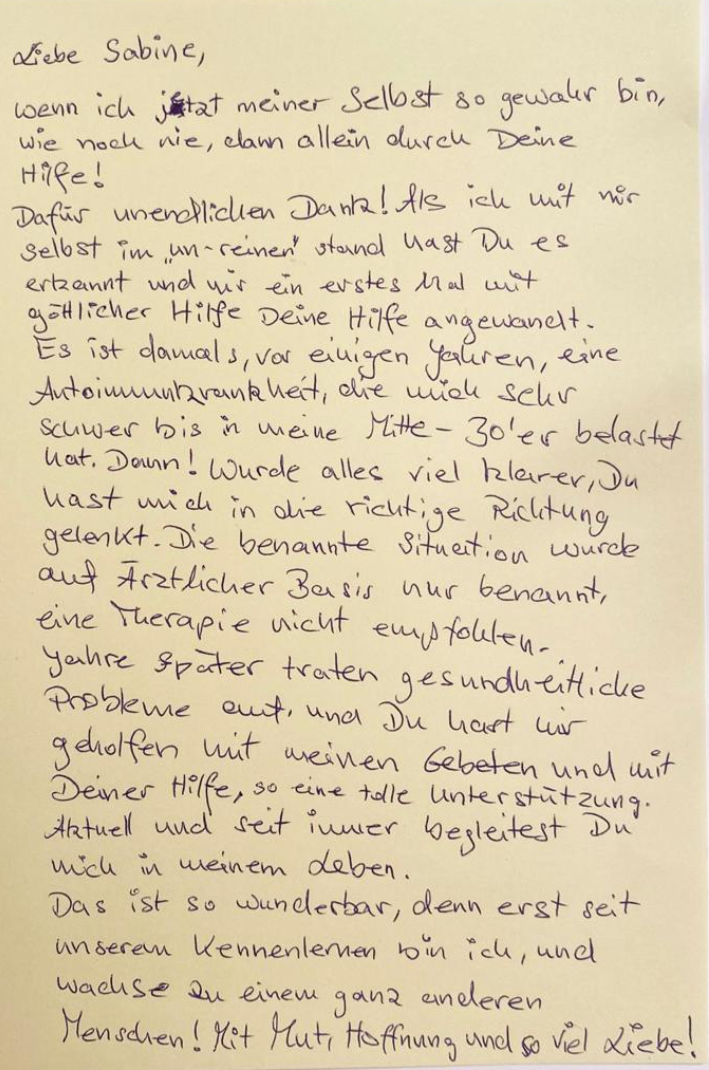 Liebe Sabine,
wenn ich jetzt meiner Selbst so gewahr bin,
wie noch nie, dann allein durch Deine
Hilfe!
Dafür unendlichen Dank! Als ich mit mir
selbst im „un-reinen" stand hast Du es
erkannt und mir ein erstes Mal mit
göttlicher Hilfe Deine Hilfe angewandt.
Es ist damals, vor einigen Jahren, eine
Autoimmunkrankheit, die mich sehr
schwer bis in meine Mitte-30'er belastet
hat. Dann! Wurde alles viel klarer, Du
hast mich in die richtige Richtung
gelenkt. Die benannte Situation wurde
auf Ärztlicher Basis nur benannt,
eine Therapie nicht empfohlen.
Jahre später traten gesundheitliche
Probleme auf, und Du hast mir
geholfen mit meinen Gebeten und mit
Deiner Hilfe, so eine tolle Unterstützung.
Aktuell und seit immer begleitest Du
mich in meinem Leben.
Das ist so wunderbar, denn erst seit
unserem Kennenlernen bin ich, und
wachse zu einem ganz anderen
Menschen! Mit Mut, Hoffnung und so viel Liebe!